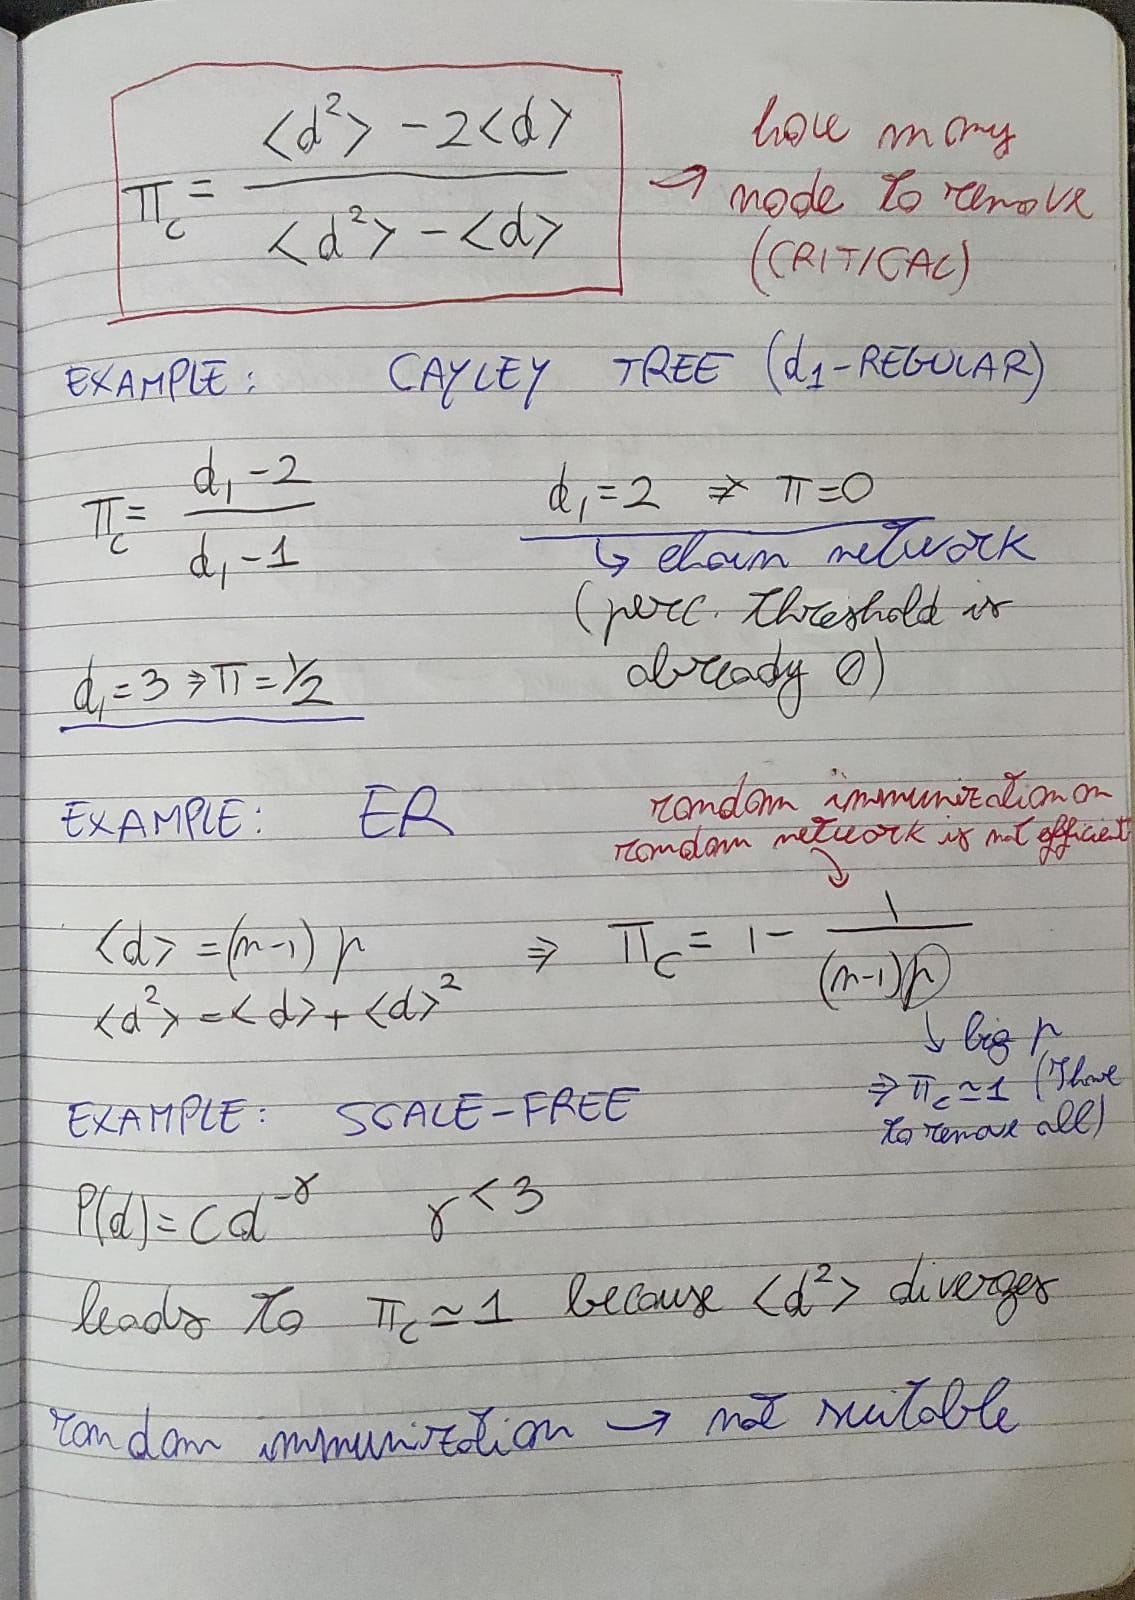 π_c = (<d²> - 2<d>) / (<d²> - <d>) → how many
node to remove
(CRITICAL)
EXAMPLE: CAYLEY TREE (d1-REGULAR)
π_c = (d₁ - 2) / (d₁ - 1)
d₁ = 2 ⇒ π = 0
↳ chain network
(perc. threshold is
already 0)
d₁ = 3 ⇒ π = 1/2
EXAMPLE: ER
random immunization on
random network is not efficient
<d> = (n-1) p ⇒ π_c = 1 - 1 / ((n-1)p)
<d²> = <d> + <d>²
↓ big p
⇒ π_c ≃ 1 (I have
to remove all)
EXAMPLE: SCALE-FREE
P(d) = C d^-γ γ < 3
leads to π_c ≃ 1 because <d²> diverges
random immunization → not suitable